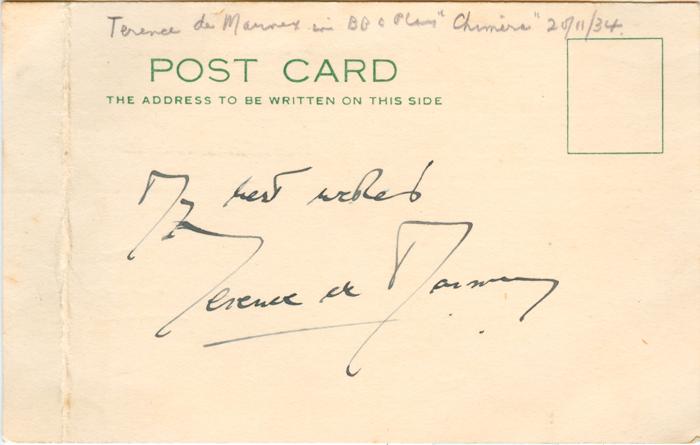 Terence de Marney in BBC Play "Chimera" 20/11/34.
POST CARD
THE ADDRESS TO BE WRITTEN ON THIS SIDE
My best wishes
Terence de Marney